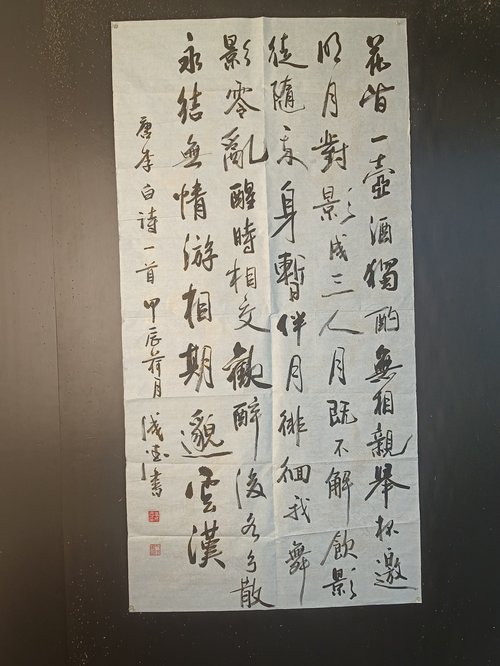 花間一壺酒獨酌無相親舉杯邀
明月對影成三人月既不解飲影
徒隨我身暫伴月徘徊我舞
影零亂醒時相交歡醉後各分散
永結無情游相期邈雲漢
唐李白詩一首 甲辰荷月 書